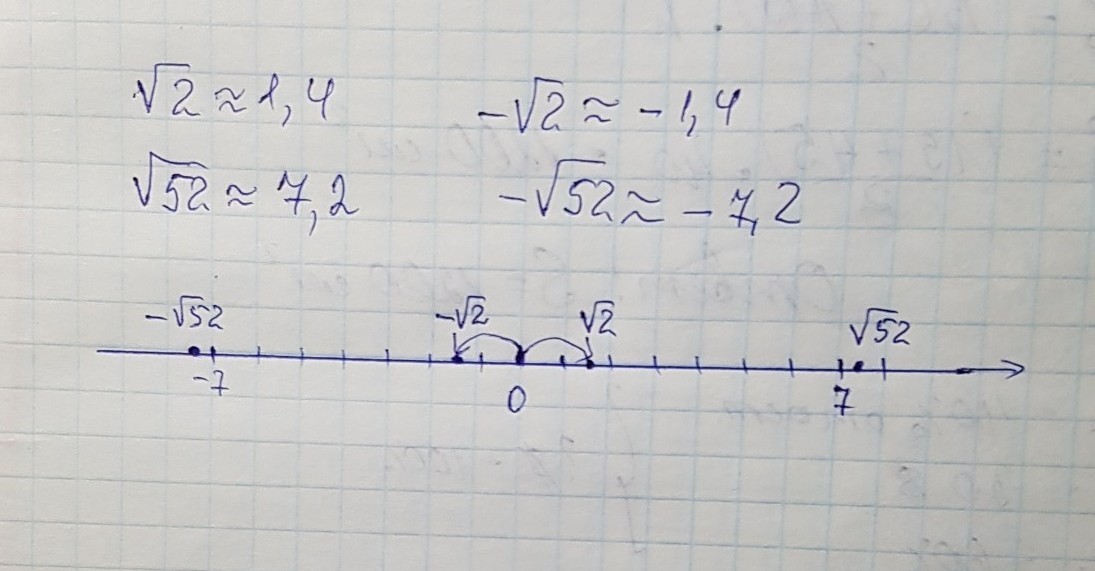 √2 ≈ 1,4 -√2 ≈ -1,4
√52 ≈ 7,2 -√52 ≈ -7,2
-√52 -√2 √2 √52
-7 0 7